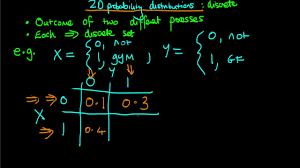 2D probability distributions : discrete
• Outcome of two diffent processes
• Each ⇒ discrete set
e.g. X = { 0, not , Y = { 0, not
1, gym 1, GF
Y
0 1
⇒⇒ 0 0.1 0.3
X
⇒ 1 0.4